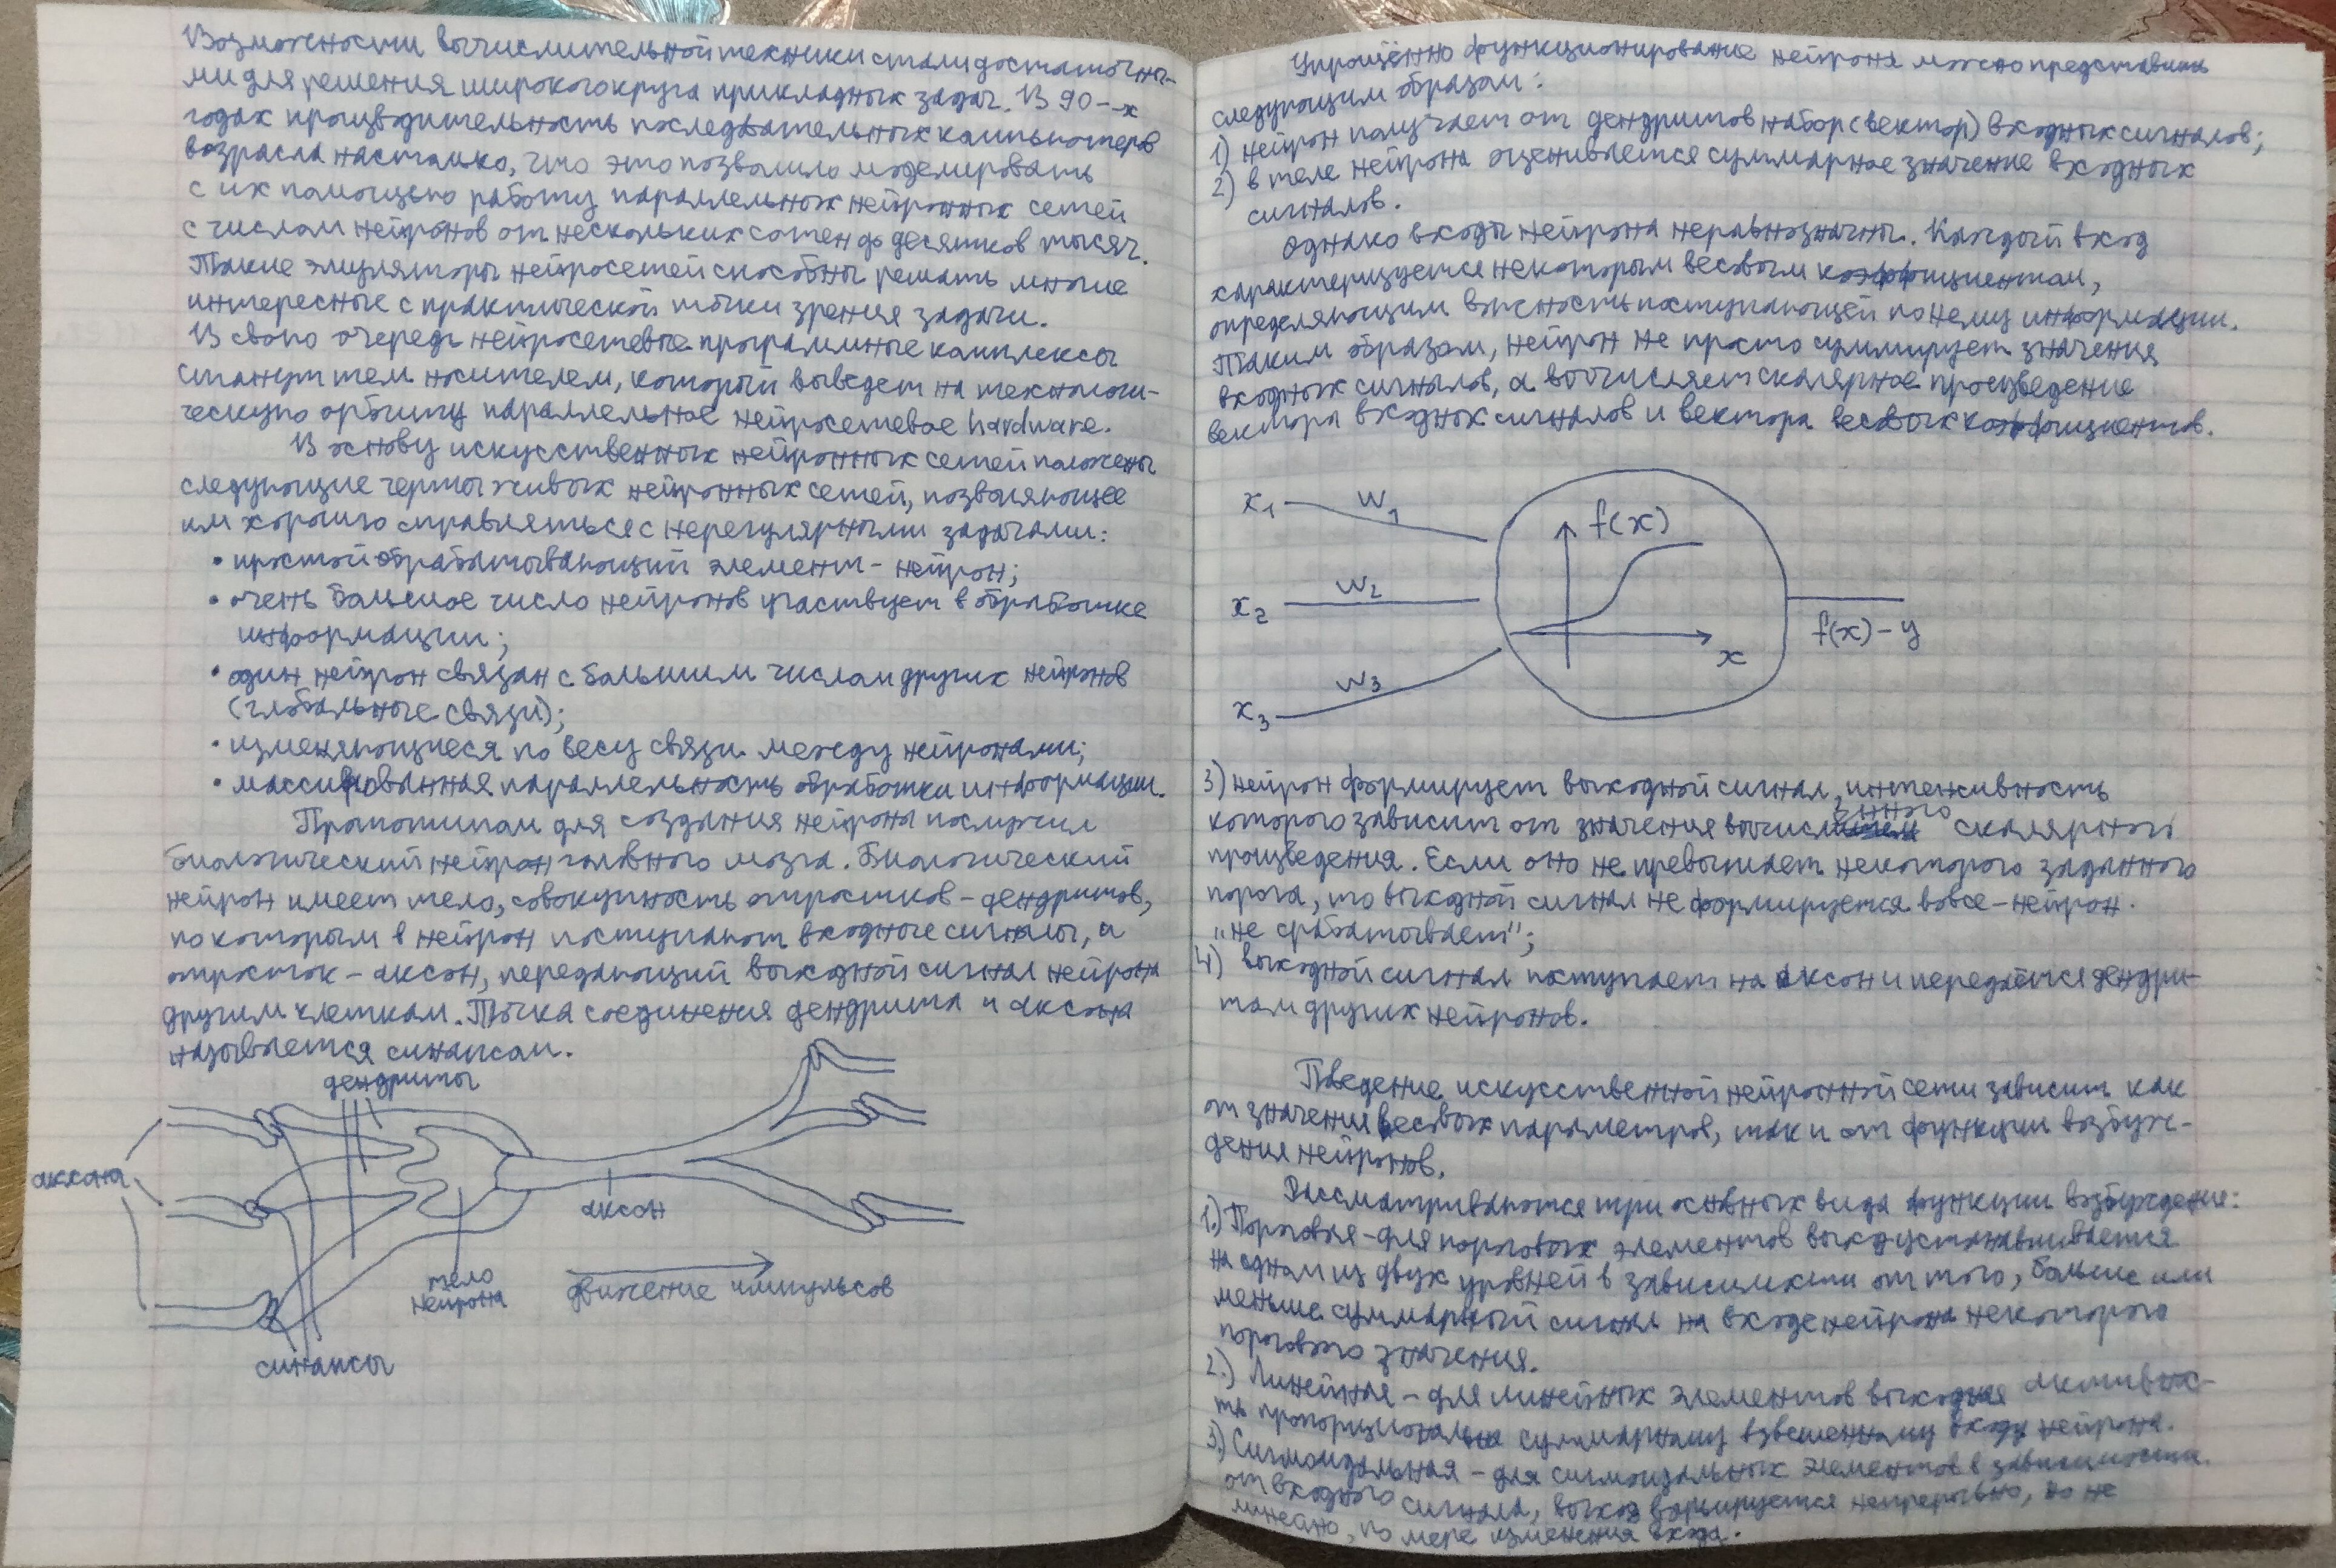 Возможности вычислительной техники стали достаточны-
ми для решения широкого круга прикладных задач. В 90-х
годах производительность последовательных компьютеров
возрасла настолько, что это позволило моделировать
с их помощью работу параллельных нейронных сетей
с числом нейронов от нескольких сотен до десятков тысяч.
Такие эмуляторы нейросетей способны решать многие
интересные с практической точки зрения задачи.
В свою очередь нейросетевые программные комплексы
станут тем носителем, который выведет на технологи-
ческую орбиту параллельное нейросетевое hardware.
В основу искусственных нейронных сетей положены
следующие черты живых нейронных сетей, позволяющее
им хорошо справляться с нерегулярными задачами:
• простой обрабатывающий элемент - нейрон;
• очень большое число нейронов участвует в обработке
информации;
• один нейрон связан с большим числом других нейронов
(глобальные связи);
• изменяющиеся по весу связи между нейронами;
• массированная параллельность обработки информации.
Прототипом для создания нейрона послужил
биологический нейрон головного мозга. Биологический
нейрон имеет тело, совокупность отростков - дендритов,
по которым в нейрон поступают входные сигналы, и
отросток - аксон, передающий выходной сигнал нейрона
другим клеткам. Точка соединения дендрита и аксона
называется синапсом.
дендриты
аксона
аксон
тело
нейрона
движение импульсов
синапсы
Упрощённо функционирование нейрона можно представить
следующим образом:
1) нейрон получает от дендритов набор (вектор) входных сигналов;
2) в теле нейрона оценивается суммарное значение входных
сигналов.
Однако входы нейрона неравнозначны. Каждый вход
характеризуется некоторым весовым коэффициентом,
определяющим важность поступающей по нему информации.
Таким образом, нейрон не просто суммирует значения
входных сигналов, а вычисляет скалярное произведение
вектора входных сигналов и вектора весовых коэффициентов.
x1 w1
f(x)
x2 w2
f(x) - y
x
x3 w3
3) нейрон формирует выходной сигнал, интенсивность
которого зависит от значения вычисленного скалярного
произведения. Если оно не превышает некоторого заданного
порога, то выходной сигнал не формируется вовсе - нейрон
„не срабатывает";
4) выходной сигнал поступает на аксон и передаётся дендри-
там других нейронов.
Поведение искусственной нейронной сети зависит как
от значения весовых параметров, так и от функции возбуж-
дения нейронов.
Рассматриваются три основных вида функции возбуждения:
1.) Пороговая - для пороговых элементов выход устанавливается
на одном из двух уровней в зависимости от того, больше или
меньше суммарный сигнал на входе нейрона некоторого
порогового значения.
2.) Линейная - для линейных элементов выходная активнос-
ть пропорциональна суммарному взвешенному входу нейрона.
3.) Сигмоидальная - для сигмоидальных элементов в зависимости
от входного сигнала, выход варьируется непрерывно, но не
линейно, по мере изменения входа.